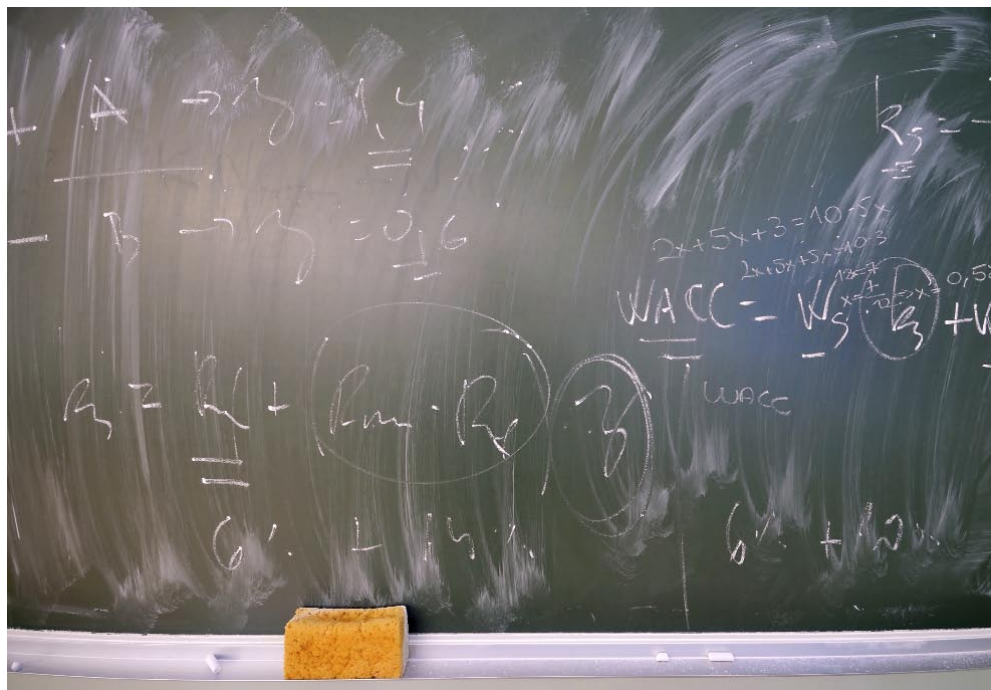 + A → β = 1,4
- B → β = 0,6
ks =
2x+5x+3=10-5x
2x+5x+5x=10-3
12x=7
x=7/12 → x= 0,58
WACC = Ws ks + W
WACC
Rf + (Rm - Rf) β
6% + 14%
6% + 12%